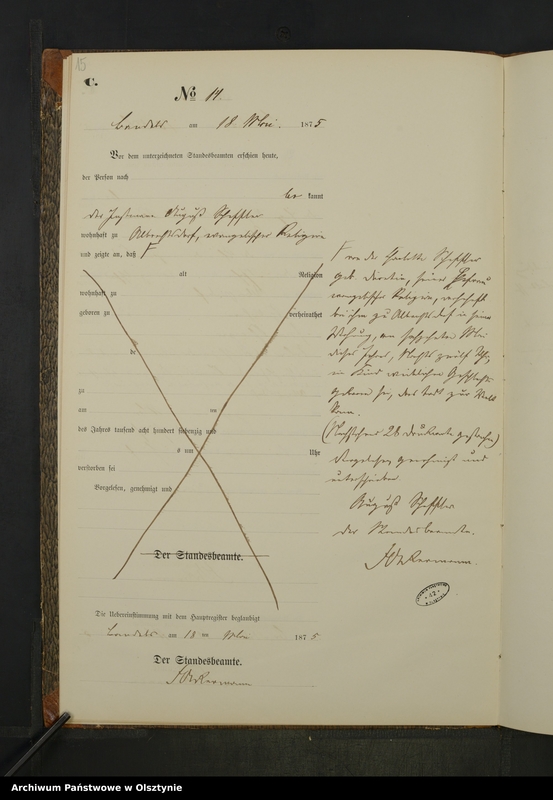 15
C.
No 11.
am 18 Mai. 1875
Vor dem unterzeichneten Standesbeamten erschien heute,
der Person nach
be kannt
der Instmann August Scheffler
wohnhaft zu Albrechtsdorf, evangelischer Religion
und zeigte an, daß
von der Charlotte Scheffler
geb. seiner Ehefrau
evangelischer Religion, wohnhaft
bei ihm zu Albrechtsdorf in seiner
Wohnung, am Mai
dieses Jahres, Nachts zwölf Uhr,
ein Kind weiblichen Geschlechts
geboren sei, das todt zur Welt
kam.
(Vorstehend 28 Druckworte gestrichen)
Vorgelesen, genehmigt und
unterschrieben
August Scheffler
Der Standesbeamte.
Ackermann.
alt Religion
wohnhaft zu
geboren zu verheirathet
de
zu
am
des Jahres tausend acht hundert siebenzig und
s um Uhr
verstorben sei
Vorgelesen, genehmigt und
Der Standesbeamte.
Die Uebereinstimmung mit dem Hauptregister beglaubigt
am 18 ten Mai 1875
Der Standesbeamte.
Ackermann
Archiwum Państwowe w Olsztynie